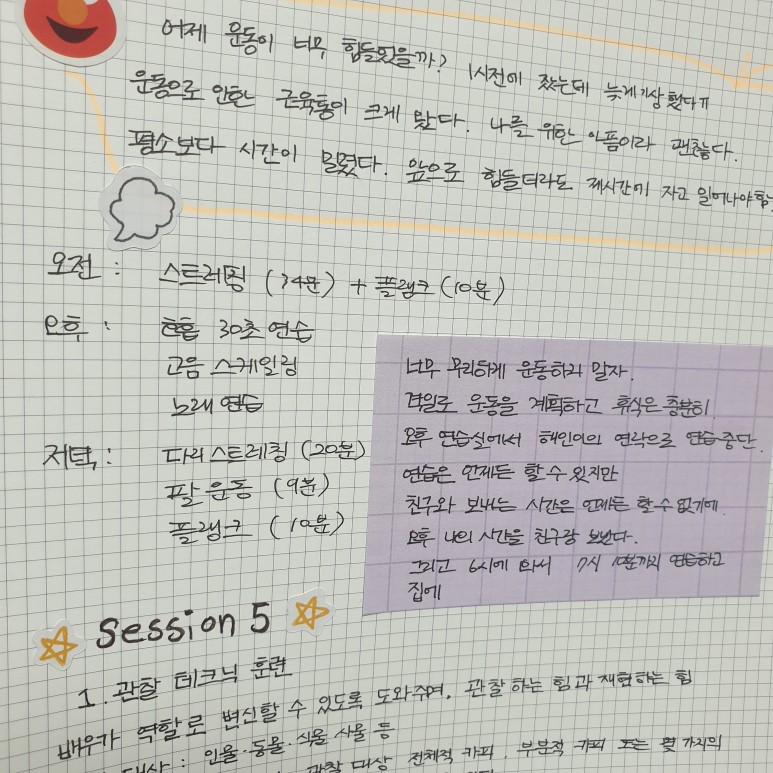 어제 운동이 너무 힘들었을까? 1시전에 잤는데 늦게기상했다ㅠ
운동으로 인한 근육통이 크게 왔다. 나를 위한 아픔이라 괜찮다.
평소보다 시간이 밀렸다. 앞으로 힘들더라도 제시간에 자고 일어나야함
오전 : 스트레칭 (34분) + 플랭크 (10분)
오후 : 호흡 30초 연습
고음 스케일링
노래 연습
저녁 : 다리 스트레칭 (20분)
팔 운동 (9분)
플랭크 (10분)
너무 무리하게 운동하지 말자.
격일로 운동을 계획하고 휴식은 충분히.
오후 연습실에서 해인이의 연락으로 연습 중단.
연습은 언제든 할 수 있지만
친구와 보내는 시간은 언제든 할 수 없기에.
오후 나의 시간을 친구랑 보냈다.
그리고 6시에 와서 7시 10분까지 연습하고
집에
Session 5
1. 관찰 테크닉 훈련
배우가 역할로 변신할 수 있도록 도와주며, 관찰하는 힘과 재현하는 힘
대상 : 인물·동물·식물 사물 등
관찰 대상 전체적 카피. 부분적 카피 또는 몇 가지의